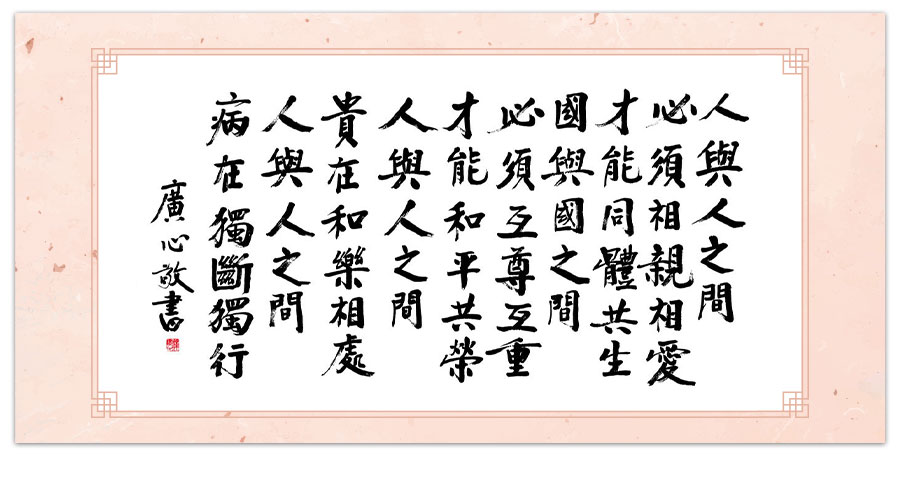 人與人之間
必須相親相愛
才能同體共生
國與國之間
必須互尊互重
才能和平共榮
人與人之間
貴在和樂相處
人與人之間
病在獨斷獨行
廣心敬書